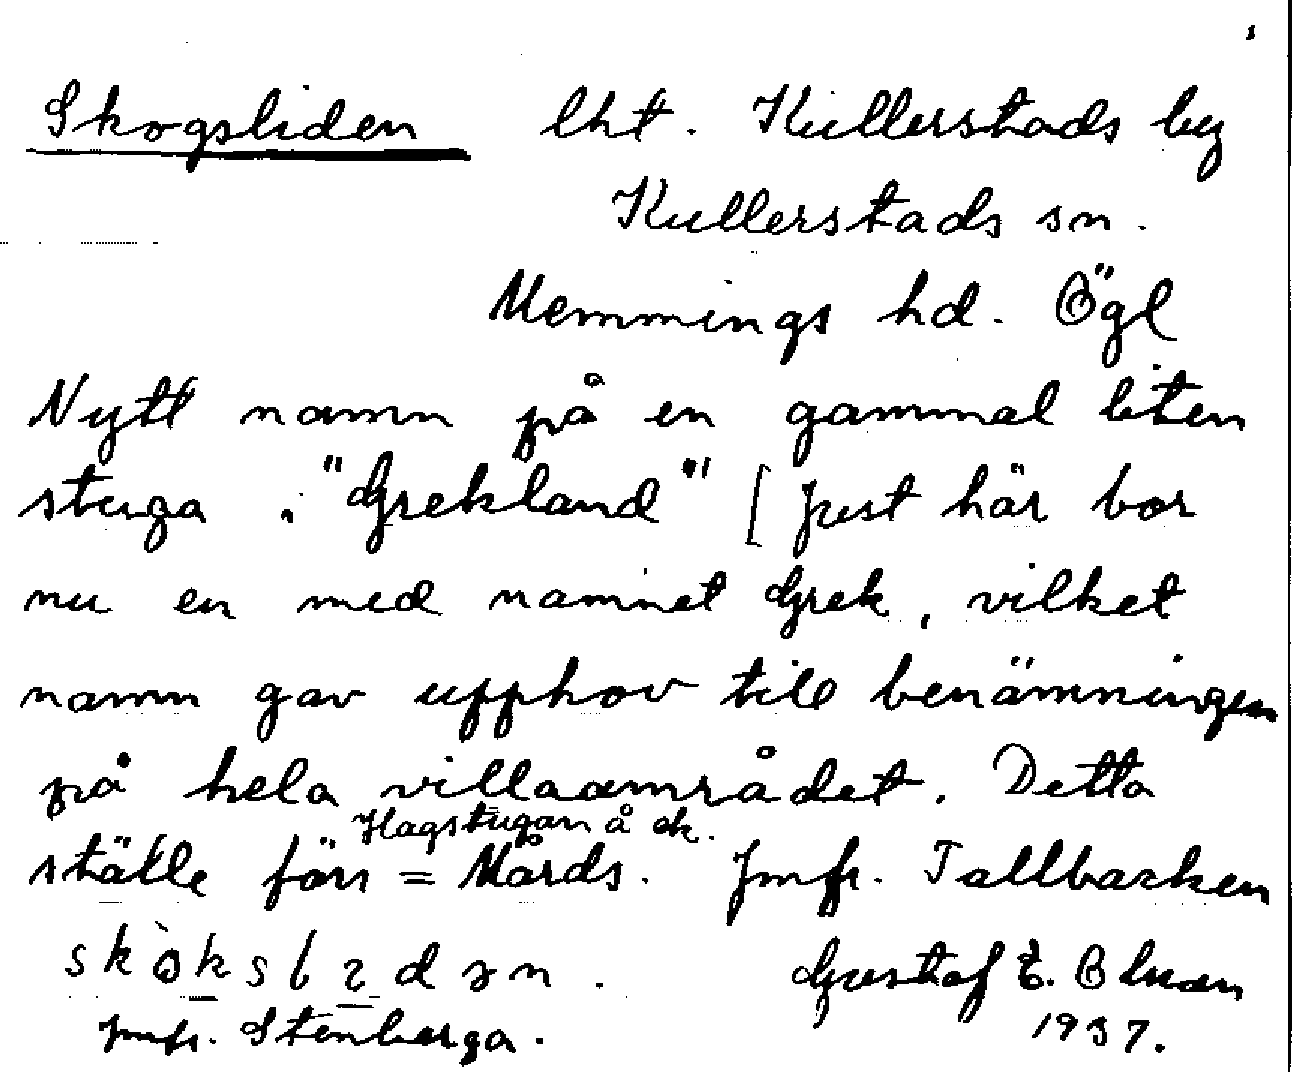 1
Skogsliden lht. Kullerstads by
Kullerstads sn.
Memmings hd. Ögl
Nytt namn på en gammal liten
stuga. "Grekland" [just här bor
nu en med namnet Grek, vilket
namn gav upphov till benämningen
på hela villaområdet. Detta
Hagstugan å ek.
ställe förs = Mårds. Jmfr. Tallbacken
skòksļɩdən. Gustaf E. Ohman
jmfr. Stenberga. 1937.